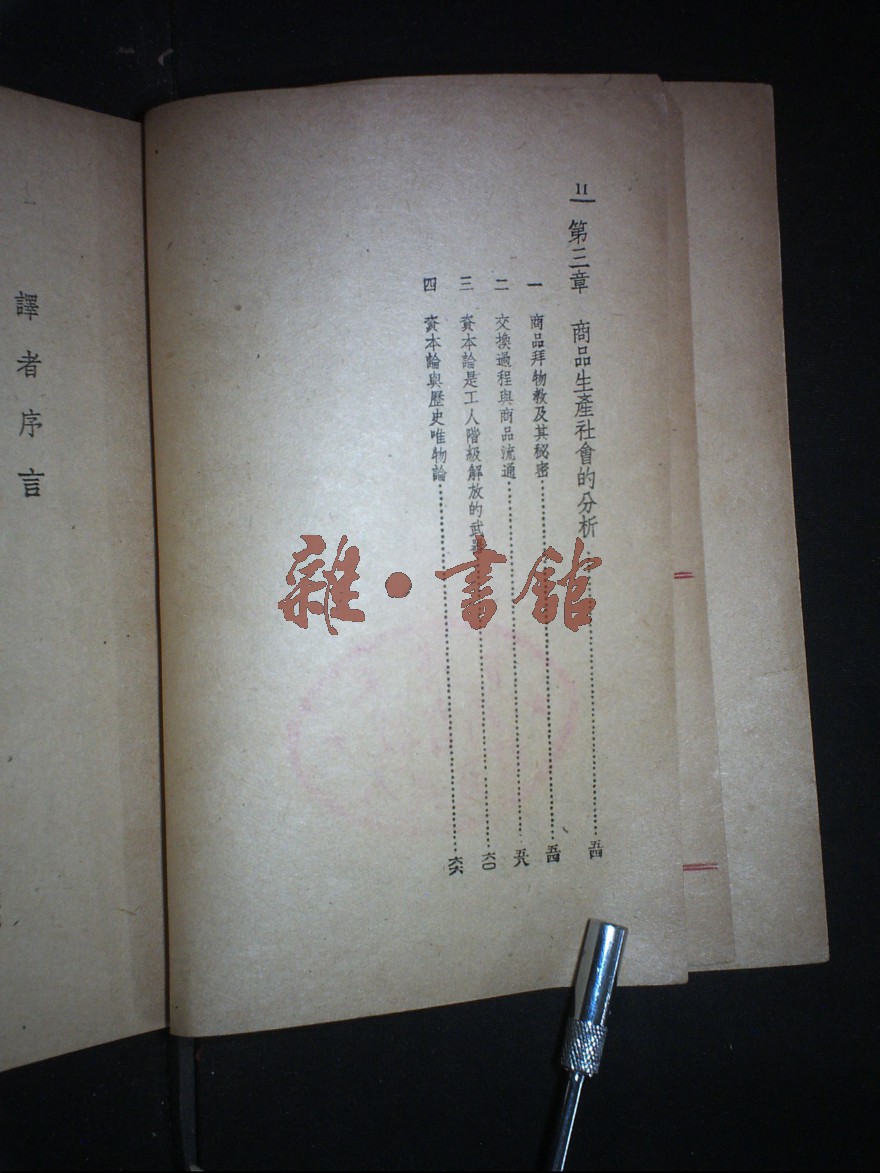 11
第三章 商品生產社會的分析 五四
一 商品拜物教及其秘密 五四
二 交換過程與商品流通 五八
三 資本論是工人階級解放的武器 六〇
四 資本論與歷史唯物論 六六
譯者序言
雜·書館